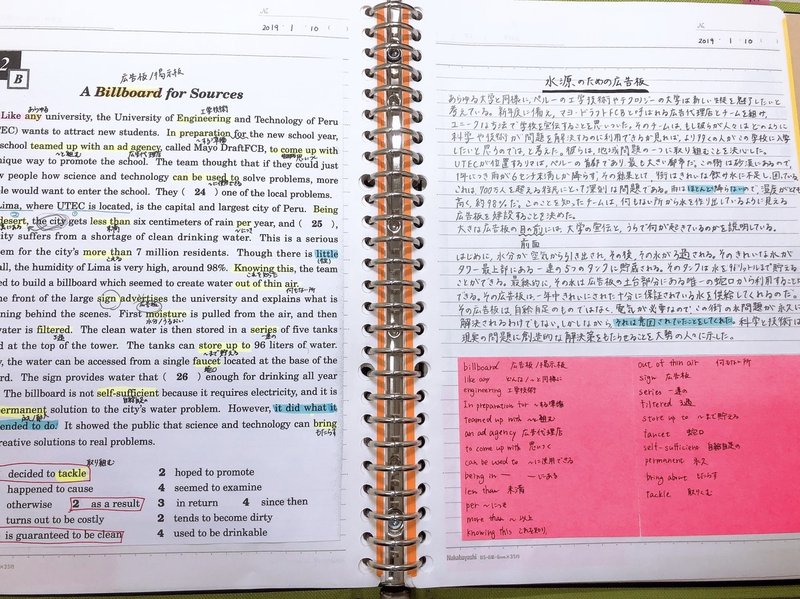 2019・1・10
2
B
広告板/掲示板
A Billboard for Sources
あらゆる
工学技術
Like any university, the University of Engineering and Technology of Peru
EC) wants to attract new students. In preparation for the new school year,
school teamed up with an ad agency, called Mayo DraftFCB, to come up with
広告代理店
nique way to promote the school. The team thought that if they could just
w people how science and technology can be used to solve problems, more
ple would want to enter the school. They ( 24 ) one of the local problems.
Lima, where UTEC is located, is the capital and largest city of Peru. Being
desert, the city gets less than six centimeters of rain per year, and ( 25 ),
city suffers from a shortage of clean drinking water. This is a serious
em for the city's more than 7 million residents. Though there is little
all, the humidity of Lima is very high, around 98%. Knowing this, the team
ed to build a billboard which seemed to create water out of thin air.
he front of the large sign advertises the university and explains what is
ning behind the scenes. First moisture is pulled from the air, and then
water is filtered. The clean water is then stored in a series of five tanks
d at the top of the tower. The tanks can store up to 96 liters of water.
y, the water can be accessed from a single faucet located at the base of the
rd. The sign provides water that ( 26 ) enough for drinking all year
The billboard is not self-sufficient because it requires electricity, and is
permanent solution to the city's water problem. However, it did what it
ended to do. It showed the public that science and technology can bring
もたらす
reative solutions to real problems.
取り組む
decided to tackle 2 hoped to promote
happened to cause 4 seemed to examine
otherwise 2 as a result 3 in return 4 since then
turns out to be costly 2 tends to become dirty
is guaranteed to be clean 4 used to be drinkable
2019・1・10
水源のための広告板
あらゆる大学と同様に、ペルーの工学技術やテクノロジーの大学は新しい生徒を魅了したいと
考えている。新年度に備え、マヨ・ドラフトFCBと呼ばれる広告代理店とチームを組み、
ユニークな方法で学校を宣伝することを思いついた。そのチームは、もし彼らが人々にどのように
科学や技術が問題を解決するのに利用できるか見れば、より多くの人がこの学校に入学
したいと思うのでは、と考えた。彼らは、地域問題の一つに取り組むことを決めた。
UTECが位置するリマは、ペルーの首都であり、最も大きい都市だ。この街は砂漠にあるので、
1年につき雨が6センチ未満しか降らず、その結果として、街はきれいな飲み水に不足し、困っている。
これは700万を超える移民にとって深刻な問題である。雨はほとんど降らないので、湿度がとても
高く、約98%だ。このことを知ったチームは、何もない所から水を作り出しているように見える
広告板を建設することを決めた。
大きな広告板の目の前には、大学の宣伝と、うらで何が起きているのかを説明している。
前面
はじめに、水分が空気から引き出され、その後、その水がろ過される。そのきれいな水が
タワー最上部にある一連の5つのタンクに貯蔵される。そのタンクは水を96リットルまで貯える
ことができる。最終的に、その水は広告板の土台部分にある唯一の蛇口から利用することが
できる。その広告板は、一年中きれいにされた十分に保証されている水を供給してくれるのだ。
その広告板は、自給自足のものではなく、電気が必要なので、この街の水問題が永久に
解決されるわけでもない。しかしながら、それは意図されていたことをしてくれた。科学と技術は、
現実の問題に創造的な解決策をもたらせることを大勢の人々に示した。
billboard 広告板/掲示板
like any どんな/〜と同様に
engineering 工学技術
In preparation for 〜する準備
teamed up with 〜と組む
an ad agency 広告代理店
to come up with 思いつく
can be used to 〜に使用できる
being in 〜 〜にある
less than 未満
per 〜につき
more than 〜以上
knowing this これを知り
out of thin air 何もない所
sign 広告板
series 一連の
filtered ろ過
store up to 〜まで貯える
faucet 蛇口
self-sufficient 自給自足の
permanent 永久
bring about もたらす
tackle 取りくむ
Nakabayashi